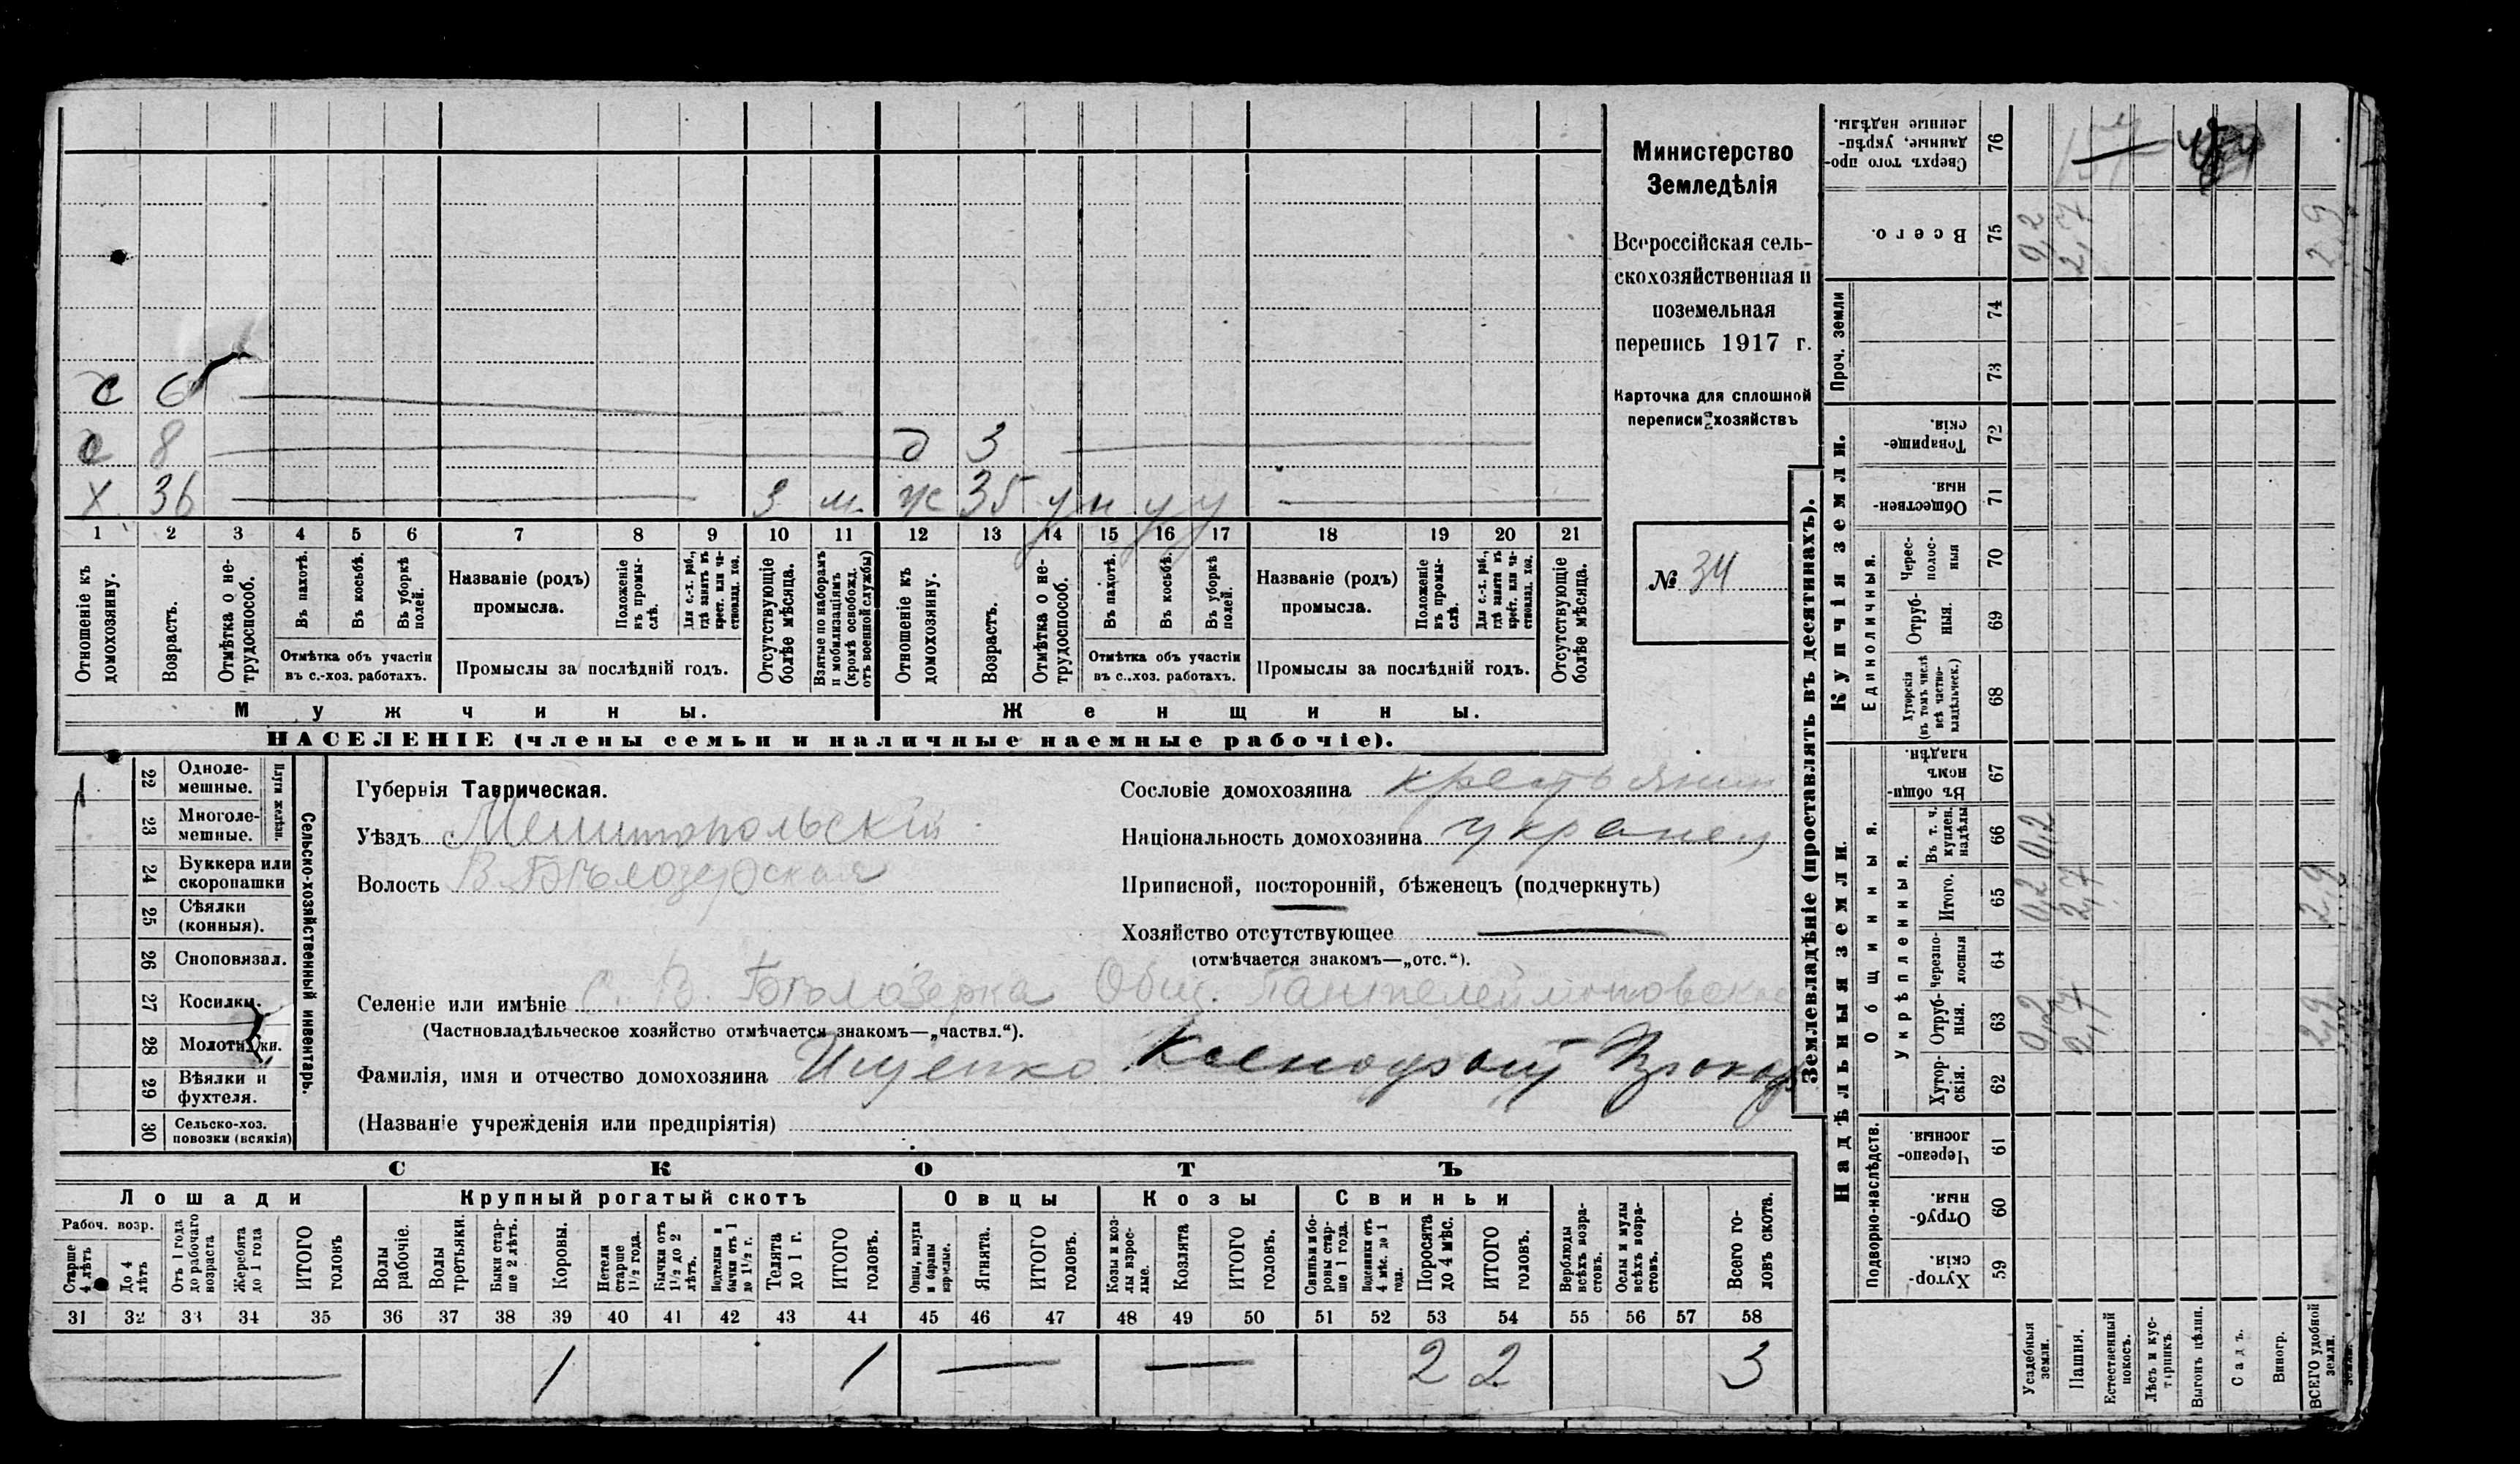 Министерство
Земледѣлія
Всероссійская сель-
скохозяйственная и
поземельная
перепись 1917 г.
Карточка для сплошной
переписи хозяйствъ
№ 34
с 6
с 8 д 3
х 36 3 м. ж 35
1 2 3 4 5 6 7 8 9 10 11 12 13 14 15 16 17 18 19 20 21
Отношеніе къ домохозяину.
Возрастъ.
Отмѣтка о не-трудоспособ.
Въ пахотѣ.
Въ косьбѣ.
Въ уборкѣ полей.
Отмѣтка объ участіи
въ с.-хоз. работахъ.
Названіе (родъ)
промысла.
Положеніе въ промы-слѣ.
Для с.-х. раб., гдѣ занятъ въ крест. или ча-стновлад. хоз.
Промыслы за послѣдній годъ.
Отсутствующіе болѣе мѣсяца.
Взятые по наборамъ и мобилизаціямъ (кромѣ освобожд. отъ военной службы)
Отношеніе къ домохозяину.
Возрастъ.
Отмѣтка о не-трудоспособ.
Въ пахотѣ.
Въ косьбѣ.
Въ уборкѣ полей.
Отмѣтка объ участіи
въ с.-хоз. работахъ.
Названіе (родъ)
промысла.
Положеніе въ промы-слѣ.
Для с.-х. раб., гдѣ занята въ крест. или ча-стновлад. хоз.
Промыслы за послѣдній годъ.
Отсутствующіе болѣе мѣсяца.
Мужчины. Женщины.
НАСЕЛЕНІЕ (члены семьи и наличные наемные рабочіе).
Сельско-хозяйственный инвентарь.
Плуги желѣзн.
22 Одноле-мешные.
23 Многоле-мешные.
24 Буккера или скоропашки
25 Сѣялки (конныя).
26 Сноповязал.
27 Косилки.
28 Молотилки.
29 Вѣялки и фухтеля.
30 Сельско-хоз. повозки (всякія)
Губернія Таврическая.
Уѣздъ Мелитопольскій
Волость В. Бѣлозерская
Сословіе домохозяина крестьянин
Національность домохозяина украинец
Приписной, посторонній, бѣженецъ (подчеркнуть)
Хозяйство отсутствующее
(отмѣчается знакомъ—„отс.“).
Селеніе или имѣніе С. В. Бѣлозерка Общ. Пантелеймоновское
(Частновладѣльческое хозяйство отмѣчается знакомъ—„частвл.“).
Фамилія, имя и отчество домохозяина Ищенко Ксенофонт Прокоф
(Названіе учрежденія или предпріятія)
СКОТЪ
Лошади Крупный рогатый скотъ Овцы Козы Свиньи
Рабоч. возр.
Старше 4 лѣтъ
До 4 лѣтъ
Отъ 1 года до рабочаго возраста
Жеребята до 1 года
ИТОГО головъ
Волы рабочіе.
Волы третьяки.
Быки стар-ше 2 лѣтъ.
Коровы.
Нетели старше 1½ года.
Бычки отъ 1½ до 2 лѣтъ.
Подтелки и бычки отъ 1 до 1½ г.
Телята до 1 г.
ИТОГО головъ.
Овцы, валухи и бараны взрослые.
Ягнята.
ИТОГО головъ.
Козы и коз-лы взрос-лые.
Козлята
ИТОГО головъ.
Свиньи и бо-ровы стар-ше 1 года.
Подсвинки отъ 4 мѣс. до 1 года.
Поросята до 4 мѣс.
ИТОГО головъ.
Верблюды всѣхъ возра-стовъ.
Ослы и мулы всѣхъ возра-стовъ.
Всего го-ловъ скота.
31 32 33 34 35 36 37 38 39 40 41 42 43 44 45 46 47 48 49 50 51 52 53 54 55 56 57 58
1 1 2 2 3
Землевладѣніе (проставлять въ десятинахъ).
Надѣльныя земли.
Подворно-наслѣдств.
Хутор-скія. 59
Отруб-ныя. 60
Черезпо-лосныя 61
Общинныя.
Укрѣпленныя.
Хутор-скія. 62
Отруб-ныя. 63 0,2 2,7 2,9
Черезпо-лосныя 64
Итого. 65 0,2 2,7 2,9
Въ т. ч. куплен. надѣлы 66 0,2
Въ общи-номъ владѣн. 67
Купчія земли.
Единоличныя.
Хуторскія (въ томъ числѣ всѣ частно-владѣльческ.) 68
Отруб-ныя. 69
Черес-полос-ныя 70
Обществен-ныя. 71
Товарище-скія. 72
Проч. земли
73 74
Всего. 75 0,2 2,7 2,9
Сверхъ того про-данные, укрѣп-ленные надѣлы. 76
Усадебныя земли.
Пашня.
Естественный покосъ.
Лѣсъ и кус-тарникъ.
Выгонъ цѣлин.
Садъ.
Виногр.
ВСЕГО удобной земли.